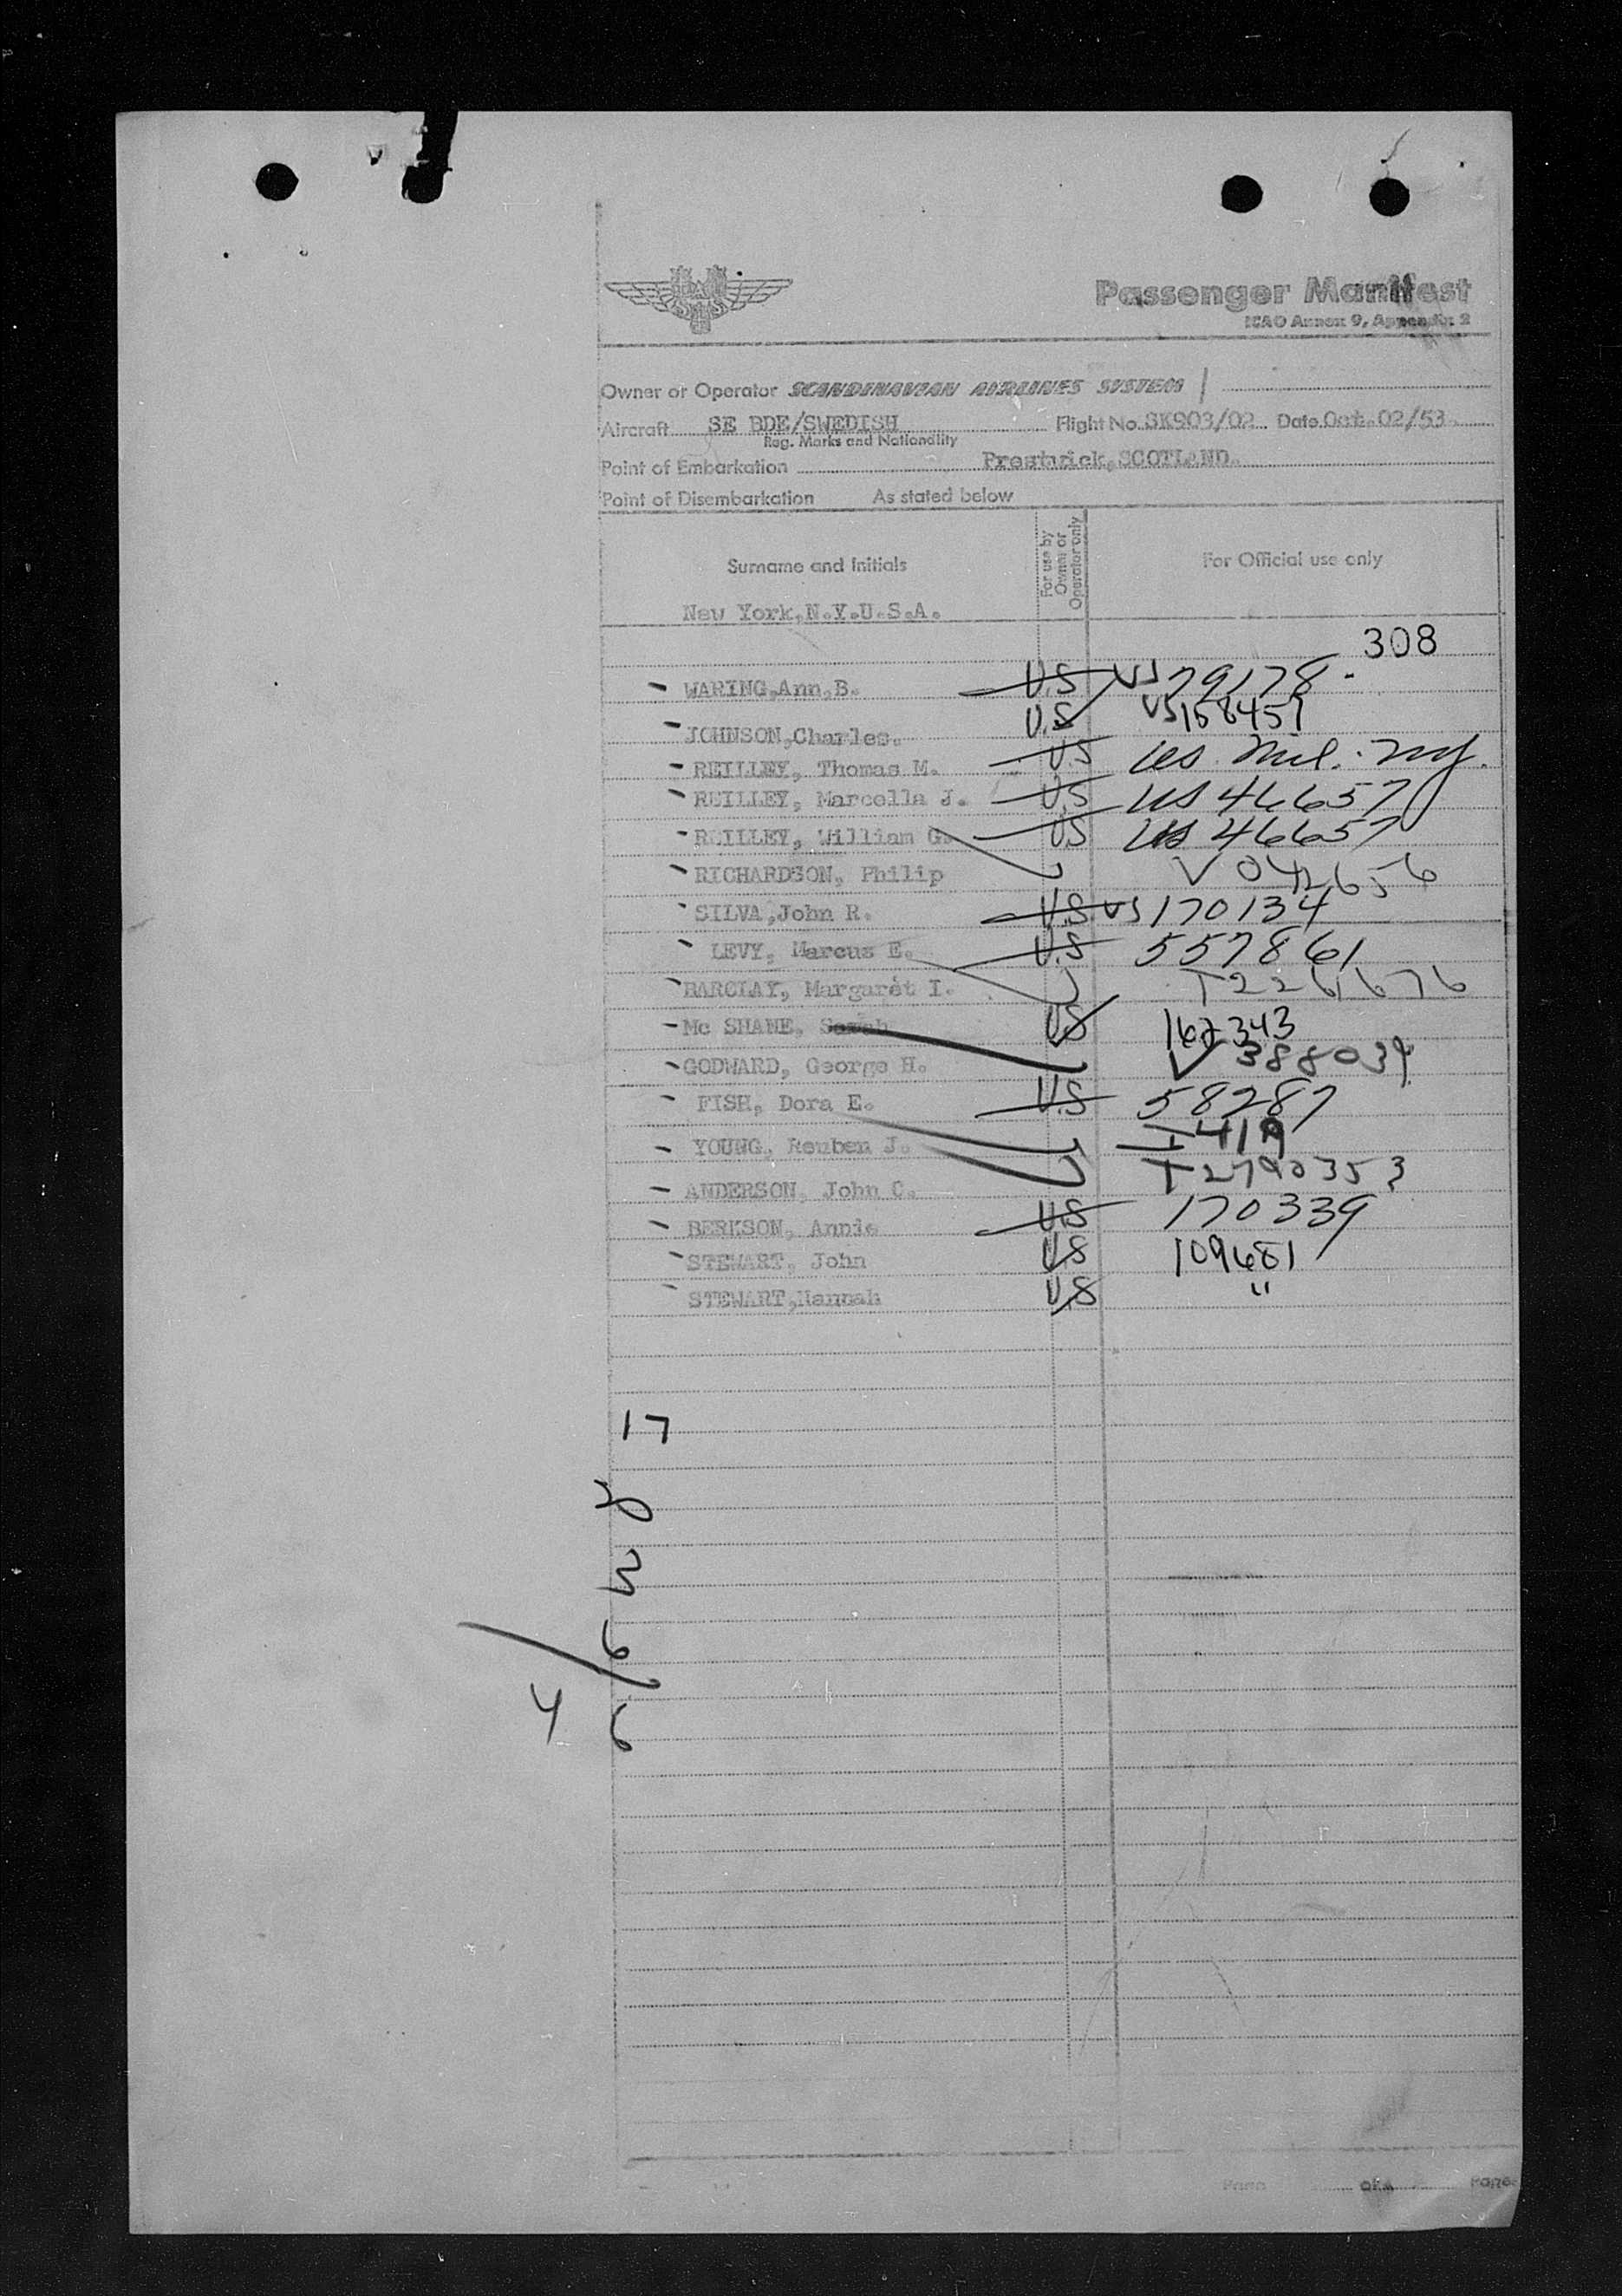 Passenger Manifest
ICAO Annex 9, Appendix 2
Owner or Operator SCANDINAVIAN AIRLINES SYSTEM
Aircraft SE BDE/SWEDISH Flight No. SK903/02 Date Oct. 02/53.
Reg. Marks and Nationality
Point of Embarkation Prestwick, SCOTLAND.
Point of Disembarkation As stated below
Surname and Initials
For use by Owner or Operator only
For Official use only
New York, N.Y.U.S.A.
308
WARING,Ann,B. U.S US 79178.
JOHNSON,Charles. U.S US 168457
REILLEY, Thomas M. U.S US Mil.
REILLEY, Marcella J. U.S US 46657
REILLEY, William G. U.S US 46657
RICHARDSON, Philip V 042656
SILVA,John R. U.S US 170134
LEVY, Marcus E. U.S 557861
BARCLAY, Margaret I. T226 1676
Mc SHANE, Sarah U.S 162343
GODWARD, George H. V 388034
FISH, Dora E. U.S 58287
YOUNG, Reuben J. I 419
ANDERSON, John C. T2790353
BERKSON, Annie U.S 170339
STEWART, John U.S 109681
STEWART,Hannah U.S "
17
4